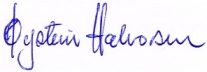 Øystein Halvorsen